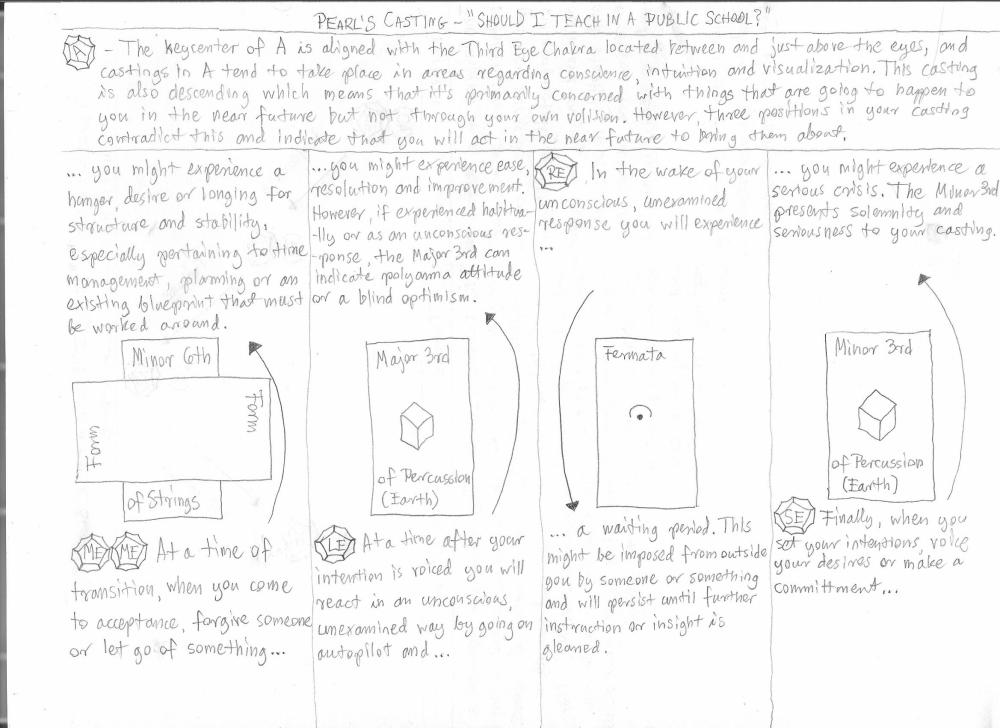 PEARL'S CASTING - "SHOULD I TEACH IN A PUBLIC SCHOOL?"
A - The keycenter of A is aligned with the Third Eye Chakra located between and just above the eyes, and
castings in A tend to take place in areas regarding conscience, intuition and visualization. This casting
is also descending which means that it's primarily concerned with things that are going to happen to
you in the near future but not through your own volition. However, three positions in your casting
contradict this and indicate that you will act in the near future to bring them about.
... you might experience a
hunger, desire or longing for
structure and stability,
especially pertaining to time
management, planning or an
existing blueprint that must
be worked around.
Minor 6th
Form
Form
of Strings
ME ME At a time of
transition, when you come
to acceptance, forgive someone
or let go of something...
... you might experience ease,
resolution and improvement.
However, if experienced habitua-
-lly or as an unconscious res-
-ponse, the Major 3rd can
indicate polyanna attitude
or a blind optimism.
Major 3rd
of Percussion
(Earth)
LE At a time after your
intention is voiced you will
react in an unconscious,
unexamined way by going on
autopilot and...
RE In the wake of your
unconscious, unexamined
response you will experience
...
Fermata
... a waiting period. This
might be imposed from outside
you by someone or something
and will persist until further
instruction or insight is
gleaned.
... you might experience a
serious crisis. The Minor 3rd
presents solemnity and
seriousness to your casting.
Minor 3rd
of Percussion
(Earth)
SE Finally, when you
set your intentions, voice
your desires or make a
committment...